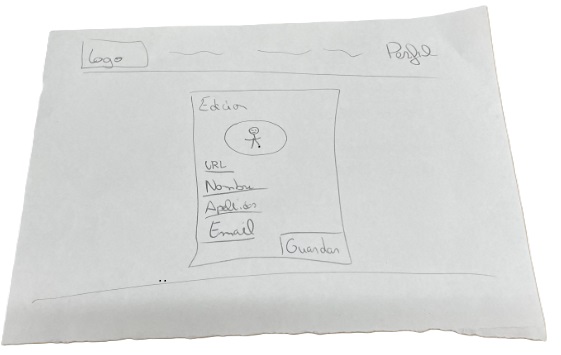 Logo Perfil
Edición
URL
Nombre
Apellidos
Email
Guardar